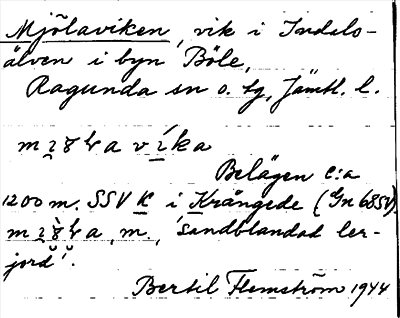 Mjölaviken, vik i Indals-
älven i byn Böle,
Ragunda sn o. tg, Jämtl. l.
a víka
Belägen c:a
1200 m. SSV K i Krångede (Gn 685V).
a, m., 'sandblandad ler-
jord'.
Bertil Flemström 1944